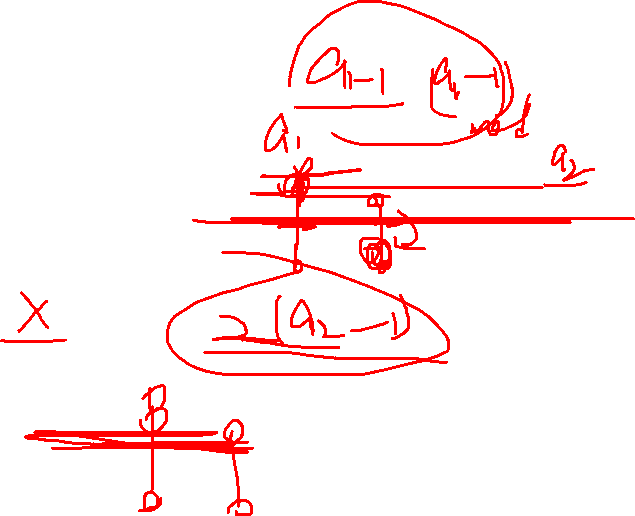 a₁-1 (a₁-1)
mod
a₁
a₂
2(a₂-1)
X
B